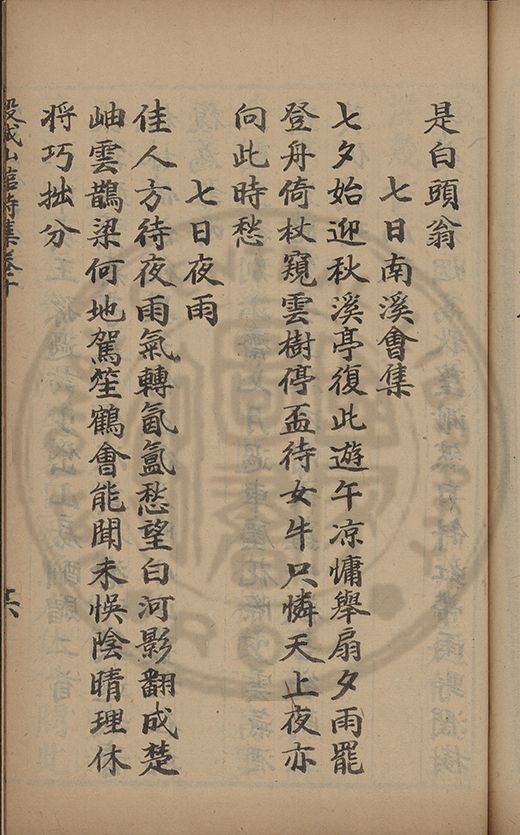 是白頭翁
七日南溪會集
七夕始迎秋溪亭復此遊午凉慵舉扇夕雨罷
登舟倚杖窺雲樹停盃待女牛只憐天上夜亦
向此時愁
七日夜雨
佳人方待夜雨氣轉氤氳愁望白河影翻成楚
岫雲鵲梁何地駕笙鶴會能聞未悞陰晴理休
將巧拙分
山館詩集卷十